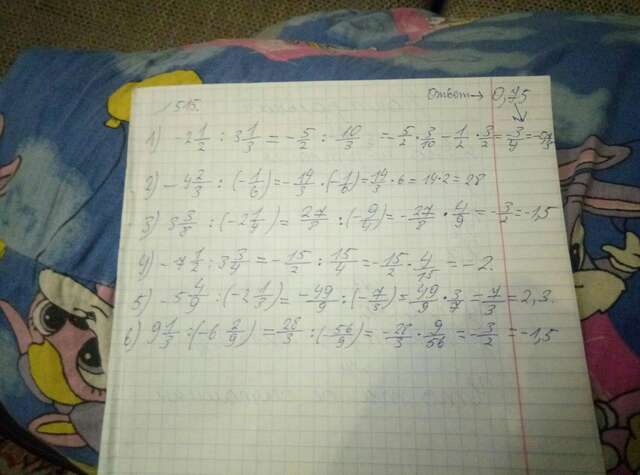 Ответ → 0,75
1515.
1) -2 1/2 : 3 1/3 = -5/2 : 10/3 = -5/2 · 3/10 - 1/2 · 3/2 = -3/4 =
2) -4 2/3 : (-1/6) = -14/3 · (-1/6) = 14/3 · 6 = 14·2 = 28
3) 3 3/8 : (-2 1/4) = 27/8 : (-9/4) = -27/8 · 4/9 = -3/2 = -1,5
4) -7 1/2 : 3 3/4 = -15/2 : 15/4 = -15/2 · 4/15 = -2.
5) -5 4/9 : (-2 1/3) = -49/9 : (-7/3) = 49/9 · 3/7 = 7/3 = 2,3.
6) 9 1/3 : (-6 2/9) = 28/3 : (-56/9) = -28/3 · 9/56 = -3/2 = -1,5